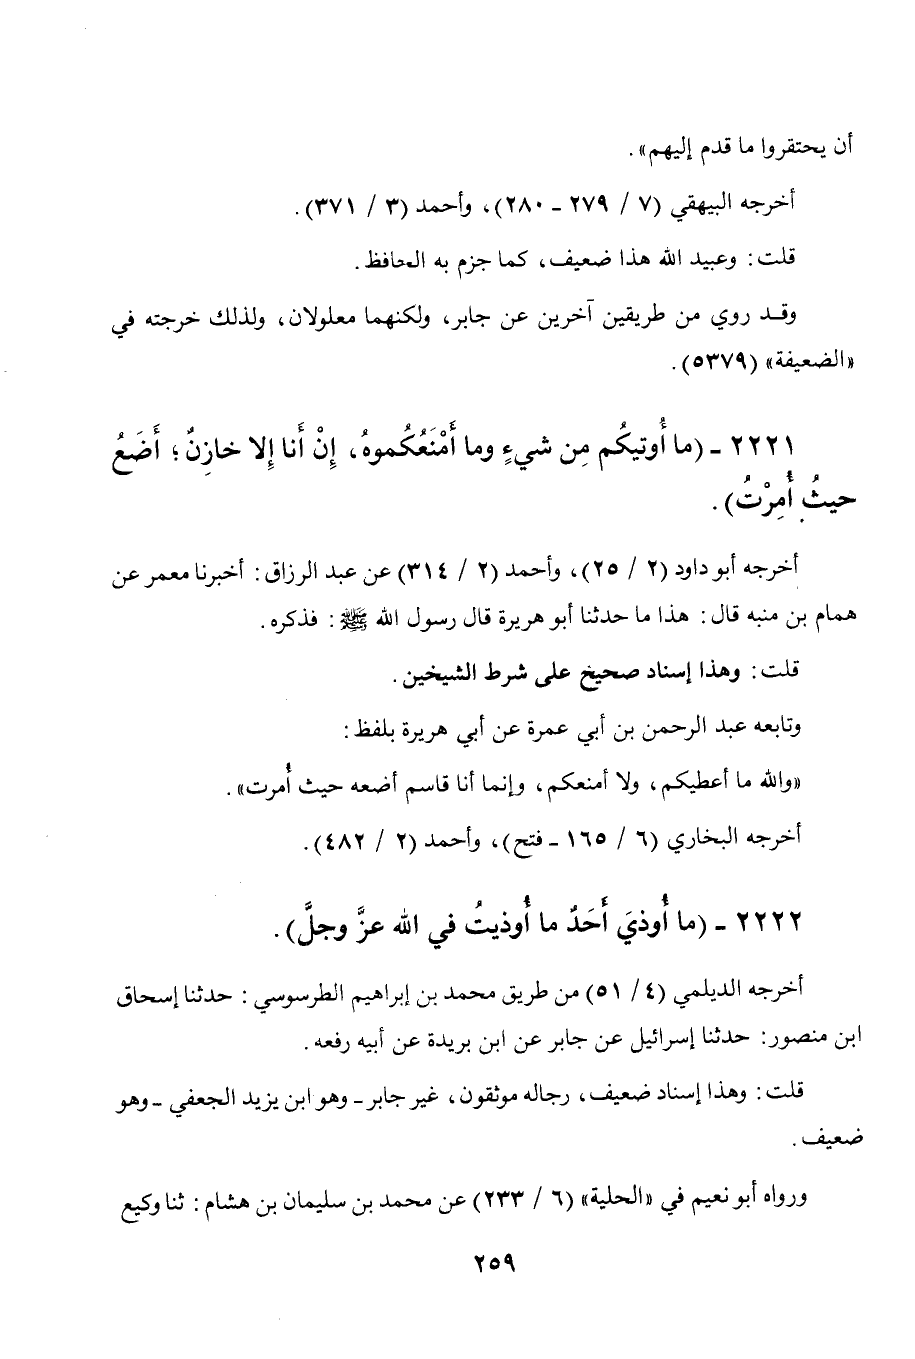 أن يحتقروا ما قدم إليهم» .
أخرجه البيهقي (٧ / ٢٧٩ ـ ٢٨٠)، وأحمد (٣ / ٣٧١) .
قلت : وعبيد الله هذا ضعيف، كما جزم به الحافظ .
وقد روي من طريقين آخرين عن جابر، ولكنهما معلولان، ولذلك خرجته في
«الضعيفة» (٥٣٧٩) .
٢٢٢١ ـ (ما أُوتيكُم مِن شيءٍ وما أَمْنَعُكُموهُ، إِنْ أَنا إِلا خازِنٌ؛ أَضَعُ
حيثُ أُمِرْتُ) .
أخرجه أبو داود (٢ / ٢٥)، وأحمد (٢ / ٣١٤) عن عبد الرزاق : أخبرنا معمر عن
همام بن منبه قال : هذا ما حدثنا أبو هريرة قال رسول الله ﷺ : فذكره .
قلت : وهذا إسناد صحيح على شرط الشيخين .
وتابعه عبد الرحمن بن أبي عمرة عن أبي هريرة بلفظ :
«والله ما أعطيكم، ولا أمنعكم، وإنما أنا قاسم أضعه حيث أُمرت» .
أخرجه البخاري (٦ / ١٦٥ ـ فتح)، وأحمد (٢ / ٤٨٢) .
٢٢٢٢ ـ (ما أُوذيَ أَحَدٌ ما أُوذيتُ في الله عزَّ وجلَّ) .
أخرجه الديلمي (٤ / ٥١) من طريق محمد بن إبراهيم الطرسوسي : حدثنا إسحاق
ابن منصور : حدثنا إسرائيل عن جابر عن ابن بريدة عن أبيه رفعه .
قلت : وهذا إسناد ضعيف، رجاله موثقون، غير جابر ـ وهو ابن يزيد الجعفي ـ وهو
ضعيف .
ورواه أبو نعيم في «الحلية» (٦ / ٢٣٣) عن محمد بن سليمان بن هشام : ثنا وكيع
٢٥٩